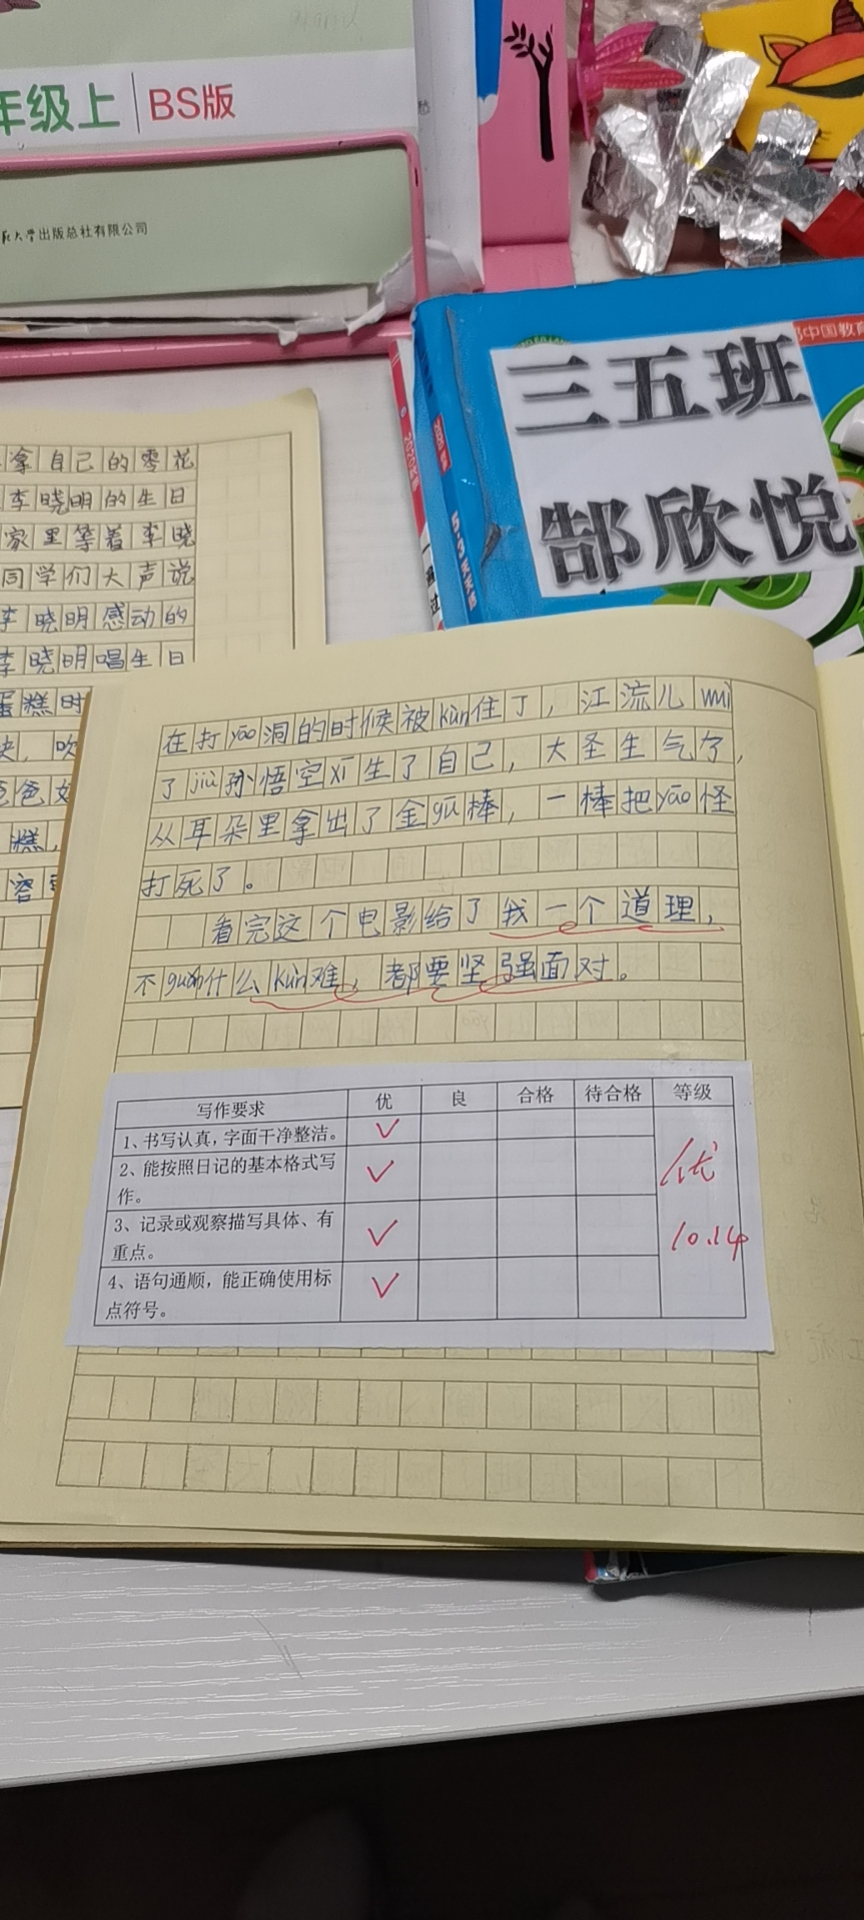 年级上 BS版
大学出版总社有限公司
中国教育
三五班
郜欣悦
拿自己的零花
李晓明的生日
家里等着李晓
同学们大声说
李晓明感动的
李晓明唱生日
蛋糕时
吹
糕，
在打yāo洞的时候被kùn住了，江流儿wèi
了jiù孙悟空xī生了自己，大圣生气了，
从耳朵里拿出了金gū棒，一棒把yāo怪
打死了。
看完这个电影给了我一个道理，
不guǎn什么kùn难，都要坚强面对。
写作要求 优 良 合格 待合格 等级
1、书写认真，字面干净整洁。 ✓
2、能按照日记的基本格式写
作。 ✓
3、记录或观察描写具体、有
重点。 ✓
4、语句通顺，能正确使用标
点符号。 ✓
优
10.14